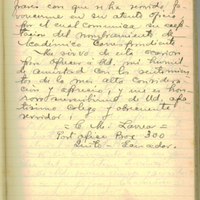 pares con que se ha servido fa-
vorecerme en su atento oficio
por el cual comunica mi acep-
tacion del nombramiento de
Académico Correspondiente.
Me sirvo de esta ocasión
para ofrecer a Ud. mi humil
de amistad con los sentimien-
tos de la más alta considera-
ción y aprecio, y me es hon-
roso suscribirme de Ud. afec-
tísimo Colega y obsecuente
servidor.
C. M. Larrea
Post office Box 300
Quito - Ecuador.